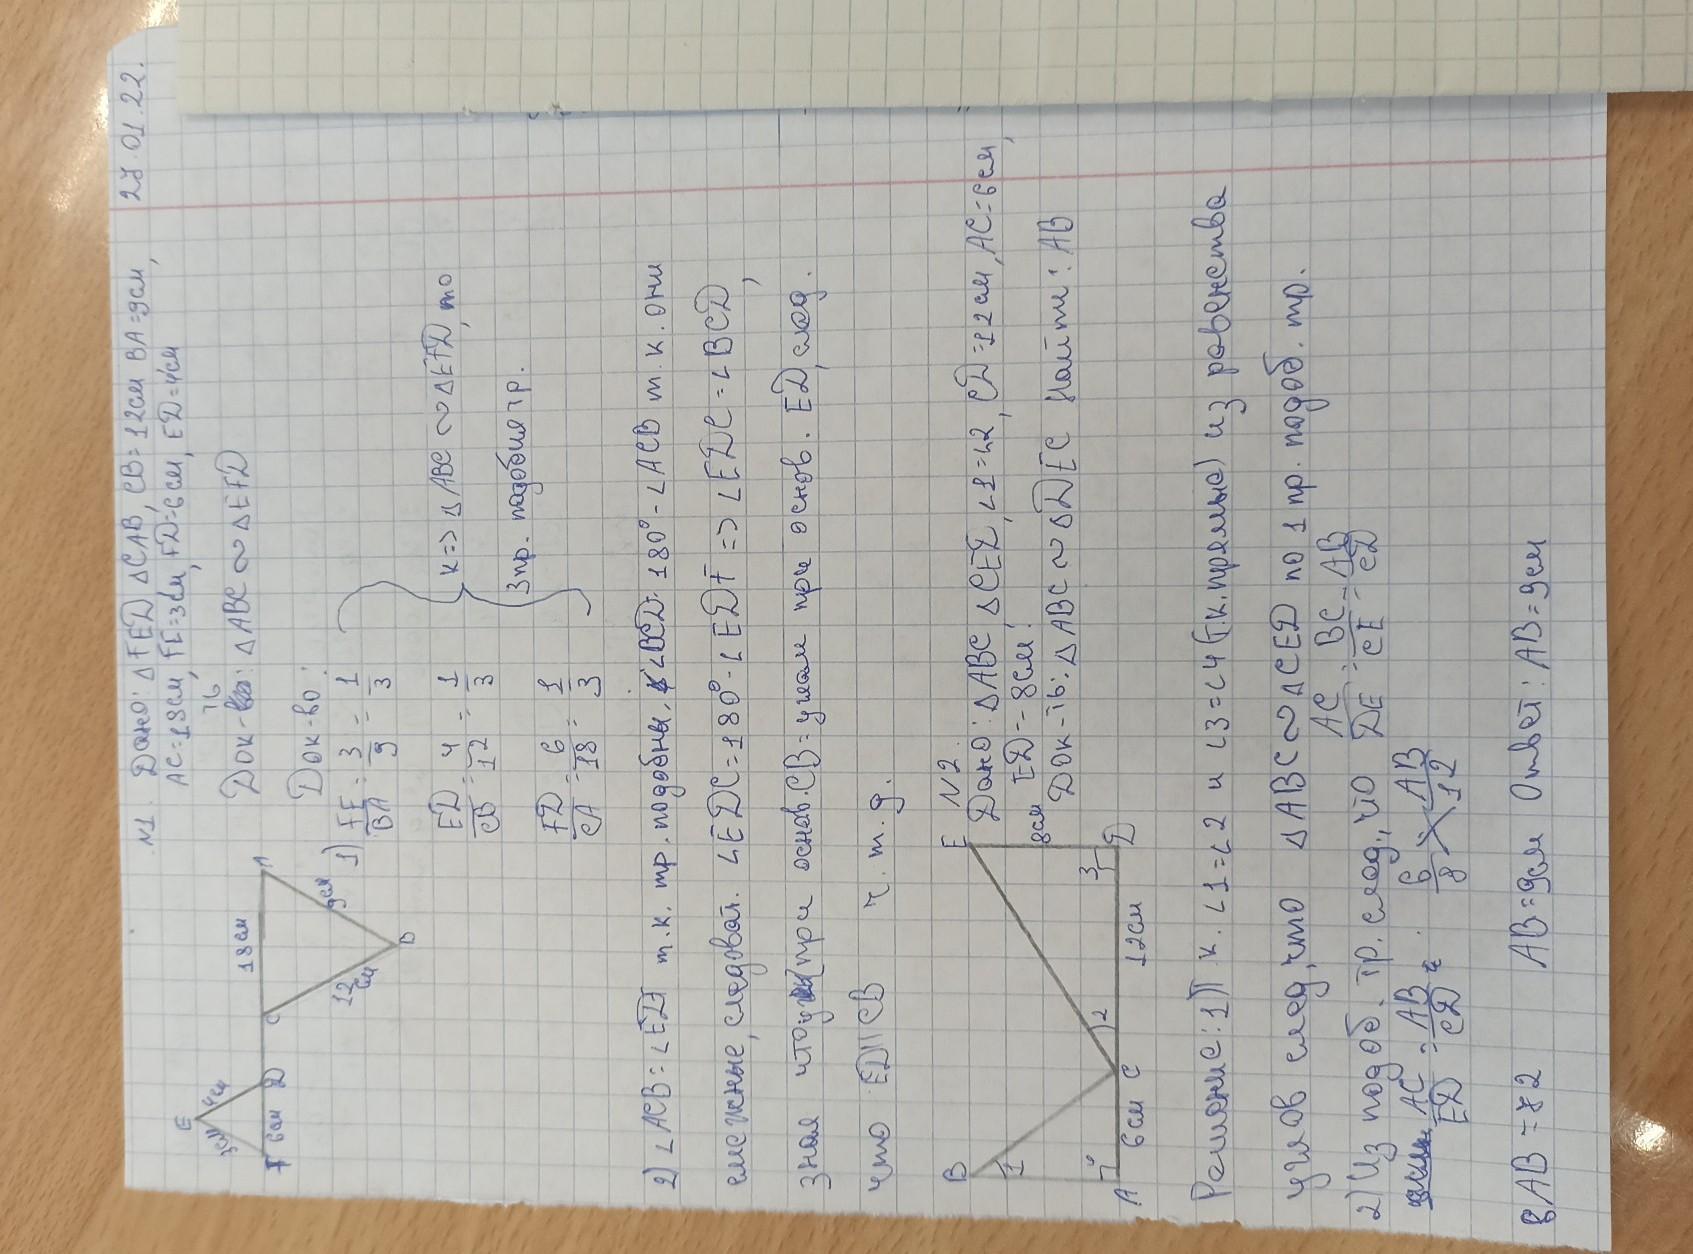 27.01.22.
N1. Дано: △FED △CAB, CB=12см BA=9см,
AC=18см, FE=3см, FD=6см, ED=4см
Док-ть: △ABC ∾ △EFD
Док-во:
1) FE/BA = 3/9 = 1/3
ED/CB = 4/12 = 1/3
FD/CA = 6/18 = 1/3
к => △ABC ∾ △EFD, по
3 пр. подобия тр.
E
3см
4см
F
6см
D
C
18см
A
12
см
9см
B
2) ∠ACB = ∠EDF т.к. тр. подобны, ∠BCD=180°-∠ACB т.к. они
смежные, следоват. ∠EDC=180°-∠EDF => ∠EDC=∠BCD,
зная что при основ. CB = углам при основ. ED, след.
что ED||CB ч.т.д.
N2.
Дано: △ABC △CED, ∠1=∠2, CD=12см, AC=6см,
ED=8см.
Док-ть: △ABC ∾ △DEC Найти: AB
B
1
4
A
6см
C
2
12см
3
D
E
8см
Решение: 1) Т.к. ∠1=∠2 и ∠3=∠4 (т.к. прямые) из равенства
углов след, что △ABC ∾ △CED по 1 пр. подоб. тр.
2) Из подоб. тр. след., что AC/DE = BC/CE = AB/CD
AC/ED = AB/CD 6/8 = AB/12
8AB=72 AB=9см Ответ: AB=9см